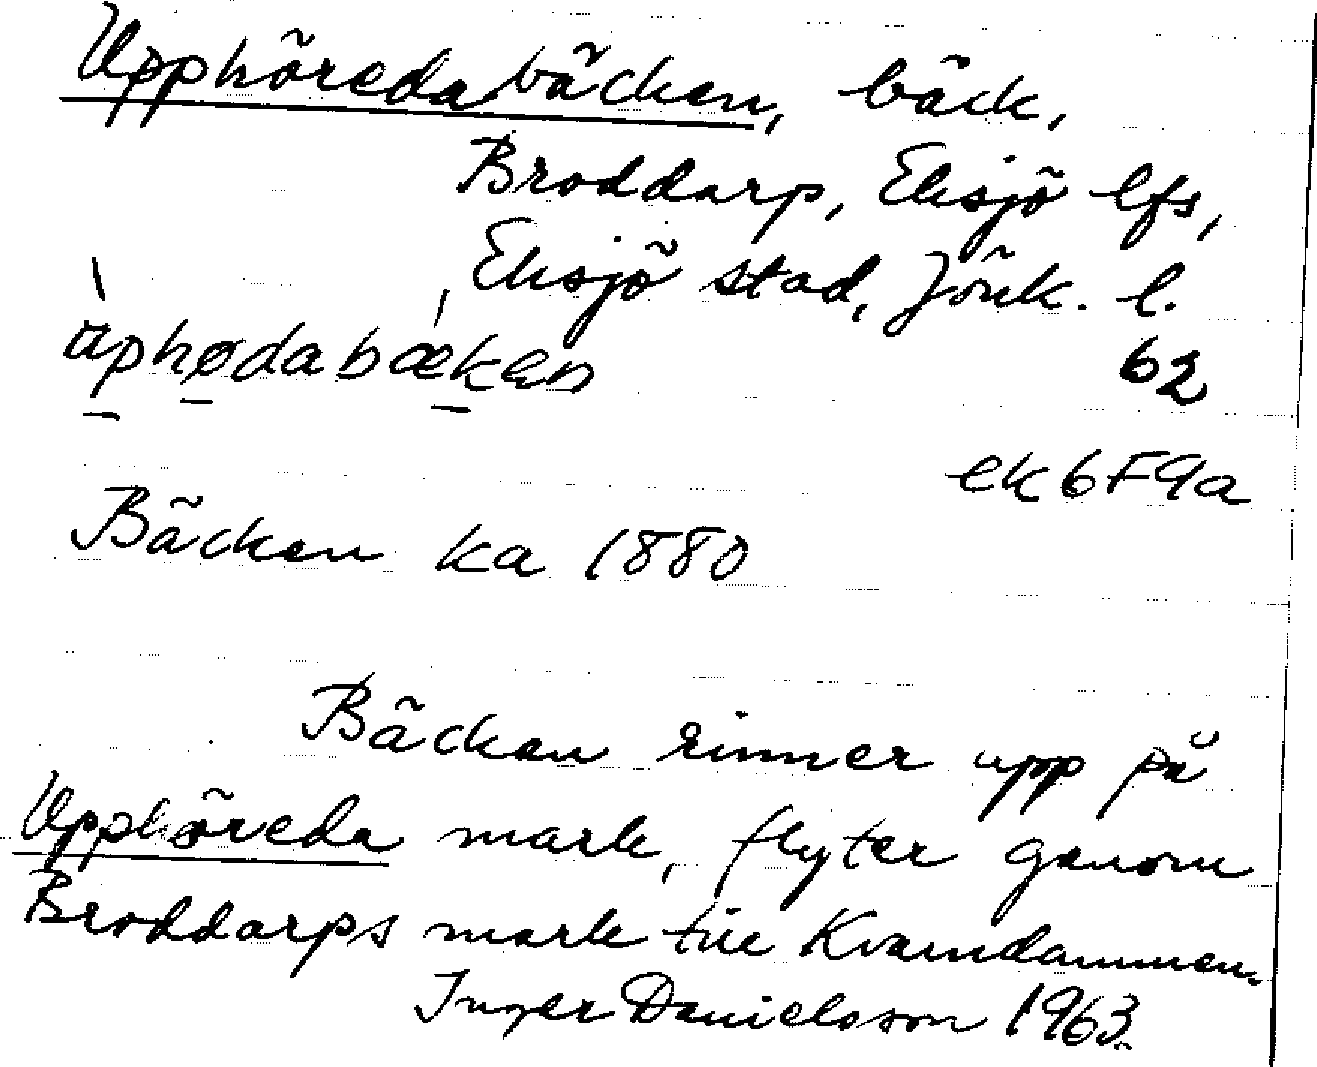 Upphöredabäcken, bäck,
Broddarp, Eksjö lfs,
Eksjö stad, Jönk. l.
úphødabækən
62
ek 6F9a
Bäcken ka 1880
Bäcken rinner upp på
Upphöreda mark, flyter genom
Broddarps mark till Kvarndammen.
Inger Danielsson 1963.